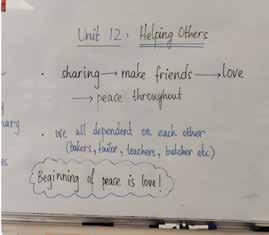 Unit 12: Helping Others
• sharing → make friends → love
→ peace throughout
nary
• We all dependent on each other
(bakers, tailor, teachers, butcher etc)
es
Beginning of peace is love!